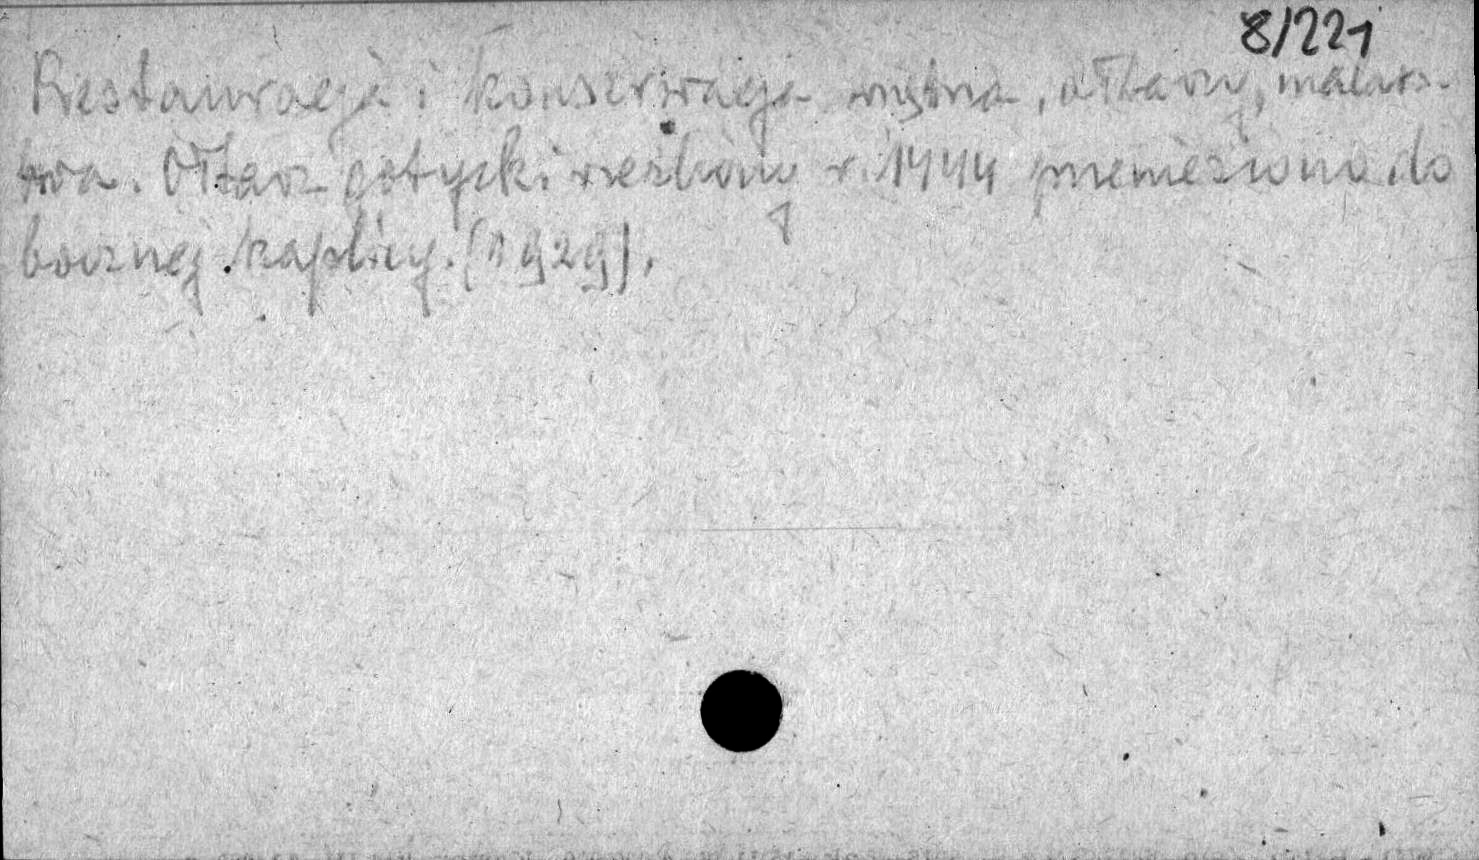 8/221
Restauracja i konserwacja wnętrza, ołtarzy, malars-
twa. Ołtarz gotycki rzeźbiony r. 1444 przeniesiono do
bocznej kaplicy. (1929).